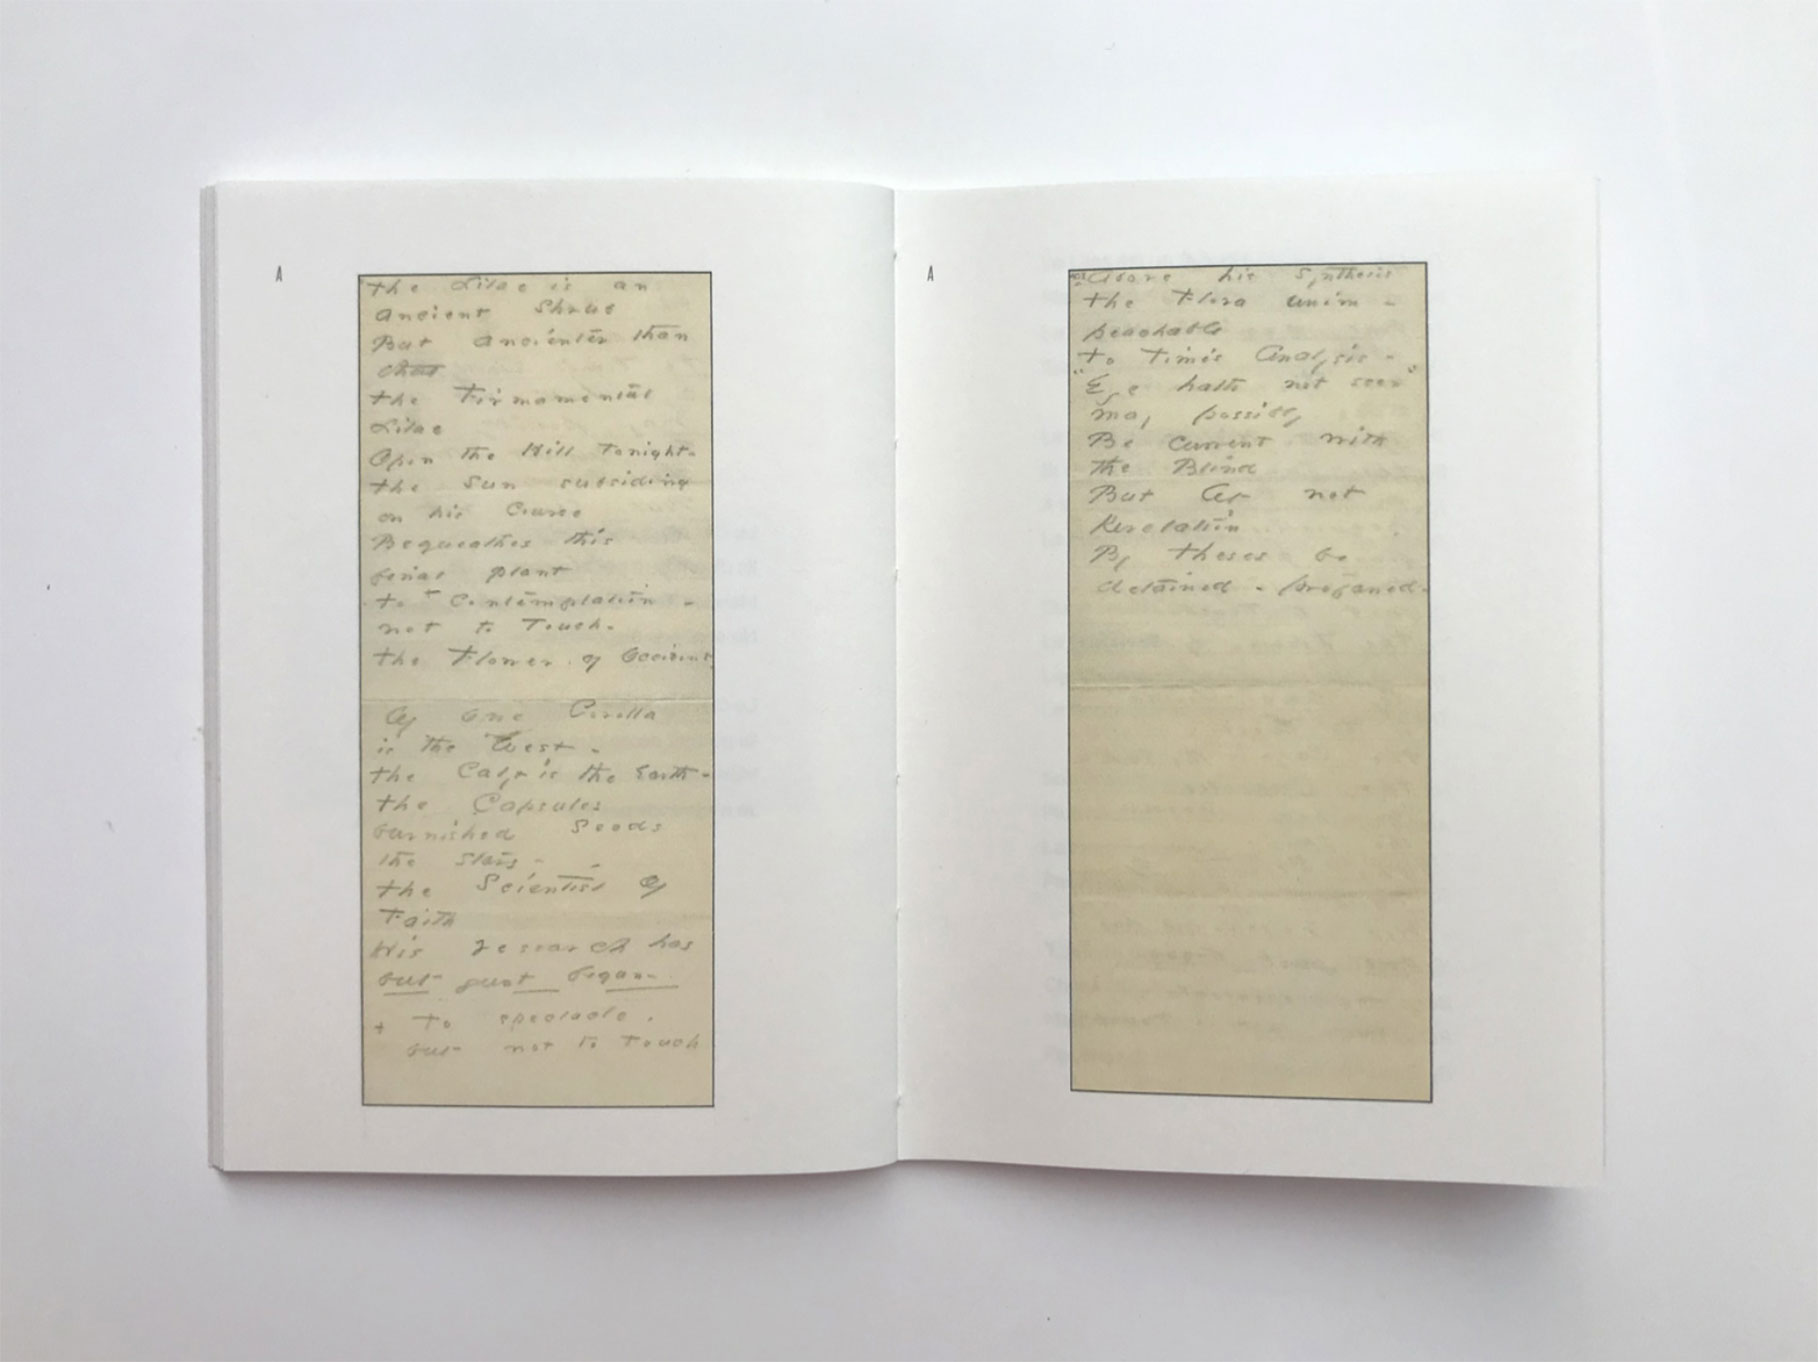 A
The Lilac is an
Ancient Shrub
But Ancienter than
that
The Firmamental
Lilac
Opon the Hill Tonight -
The Sun subsiding
on his Course
Bequeathes this
final plant
To + Contemplation -
not to Touch.
The Flower of Occident
Of one Corolla
is the West -
The Calyx is the Earth -
The Capsules
burnished Seeds
the Stars -
The Scientist of
Faith
His research has
but just begun -
+ To spectacle,
but not to Touch
A
Above his Synthesis
The Flora unim -
peachable
To Time's Analysis -
"Eye hath not seen"
May possibly
Be current with
the Blind
But let not
Revelation
By Theses be
detained - profaned -